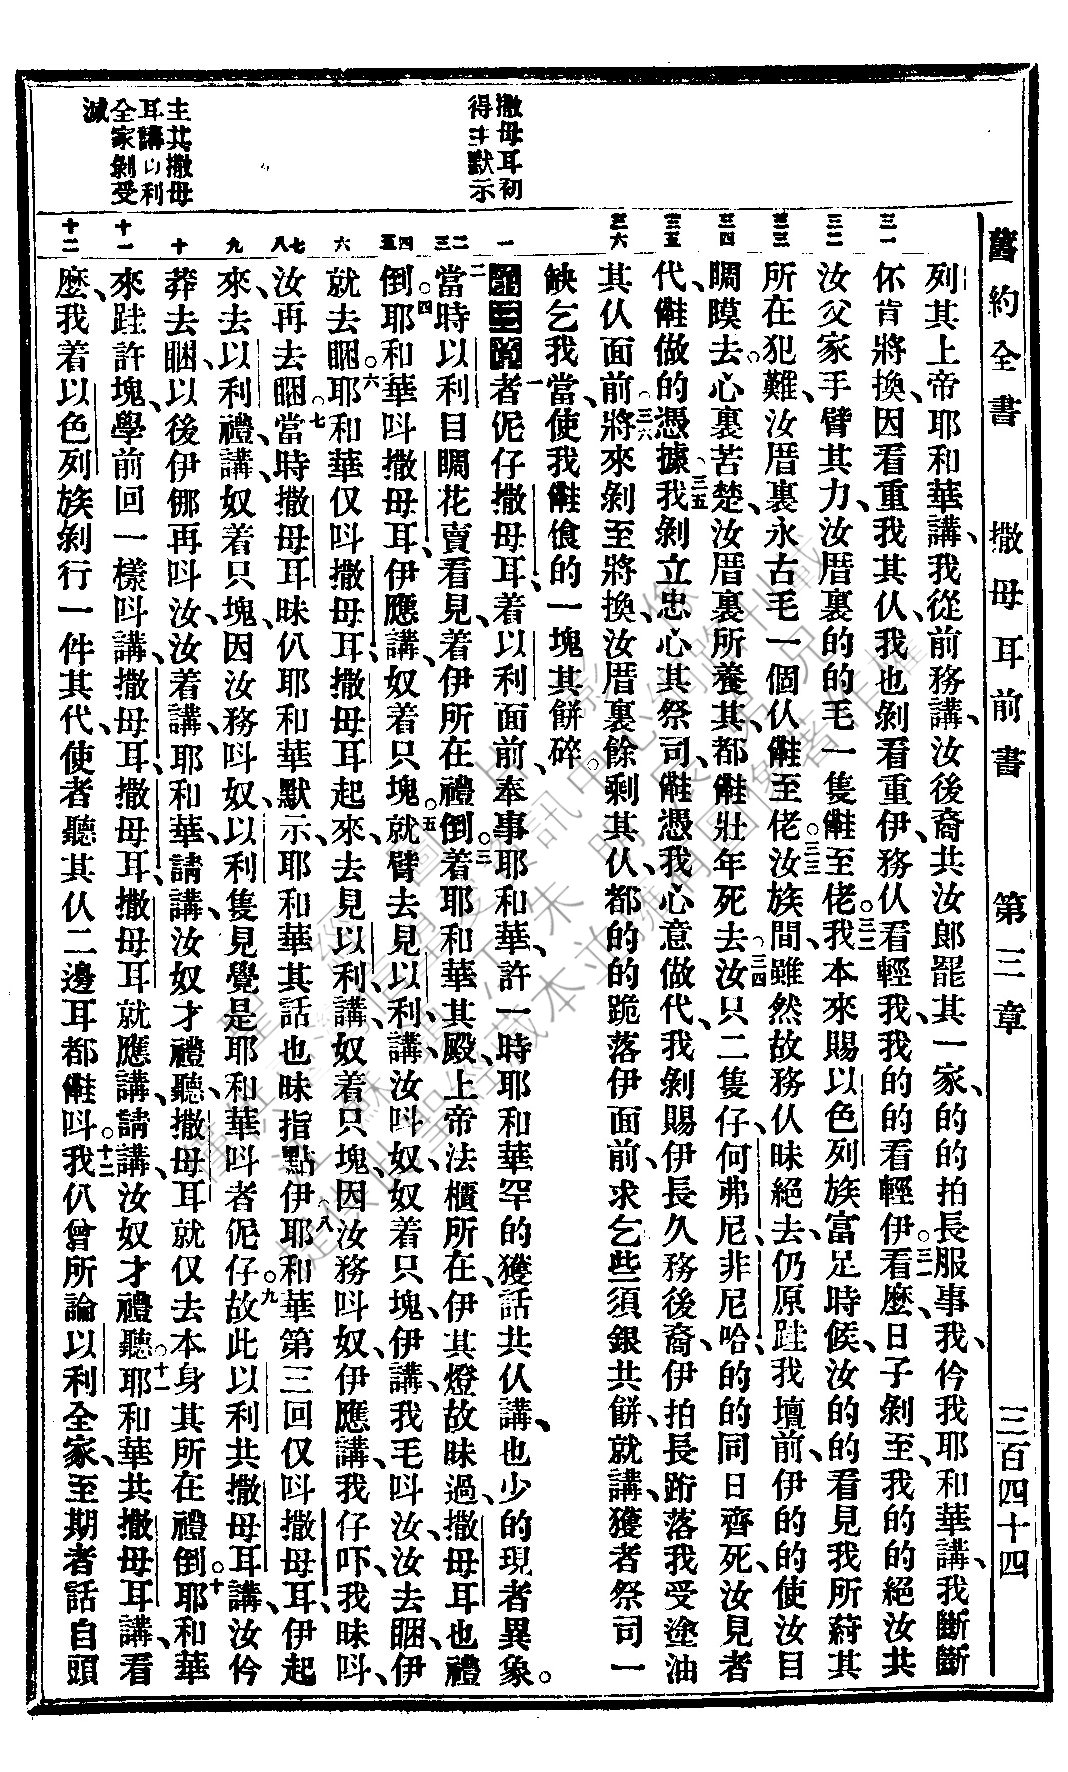 舊約全書 撒母耳前書 第三章 三百四十四
撒母耳初
得主默示
主共撒母
耳講以利
全家剝受
滅
三一 三二 三三 三四 三五 三六 一 二 三 四 五 六 七 八 九 十 十一 十二
列其上帝耶和華講、我從前務講、汝後裔共汝郎罷其一家、的的拍長服事我、仱我耶和華講、我斷斷
伓肯將換、因看重我其仈、我也剝看重伊、務仈看輕我、我的的看輕伊。三一看麽、日子剝至、我的的絕汝共
汝父家手臂其力、汝厝裏的的毛一隻𣍐至佬。三二我本來賜以色列族富足時候、汝的的看見我所蔚其
所在犯難、汝厝裏永古毛一個仈𣍐至佬。三三汝族間、雖然故務仈昧絕去、仍原跬我壇前、伊的的使汝目
睭瞙去、心裏苦楚、汝厝裏所養其、都𣍐壯年死去。三四汝只二隻仔、何弗尼、非尼哈、的的同日齊死、汝見者
代、𣍐做的憑據。三五我剝立忠心其祭司、𣍐憑我心意做代、我剝賜伊長久務後裔、伊拍長跡落我受塗油
其仈面前。三六將來剝至將換、汝厝裏餘剩其仈、都的的跪落伊面前、求乞些須銀共餅、就講、獲者祭司一
缺乞我當、使我𣍐飡的一塊其餅碎。
第三章一者伲仔撒母耳、着以利面前奉事耶和華、許一時耶和華罕的獲話共仈講、也少的現者異象。
二當時以利目睭花賣看見、着伊所在禮倒。三着耶和華其殿、上帝法櫃所在、伊其燈故昧過、撒母耳也禮
倒。四耶和華呌撒母耳、伊應講、奴着只塊。五就臂去見以利講、汝呌奴、奴着只塊、伊講、我毛呌汝、汝去睏、伊
就去睏。六耶和華仅呌撒母耳、撒母耳起來、去見以利、講、奴着只塊、因汝務呌奴、伊應講、我仔吓、我昧呌、
汝再去睏。七當時撒母耳昧仈耶和華默示、耶和華其話也昧指點伊。八耶和華第三回仅呌撒母耳、伊起
來、去以利禮、講、奴着只塊、因汝務呌奴、以利隻見覺是耶和華呌者伲仔。九故此以利共撒母耳講、汝仱
莽去睏、以後伊倻再呌汝、汝着講、耶和華、請講、汝奴才禮聽、撒母耳就仅去本身其所在禮倒。十耶和華
來跬許塊、學前回一樣呌講、撒母耳、撒母耳、撒母耳就應講、請講、汝奴才禮聽。十一耶和華共撒母耳講、看
麽、我着以色列族剝行一件其代、使者聽其仈二邊耳都𣍐呌。十二我仈曾所論以利全家、至期者話自頭